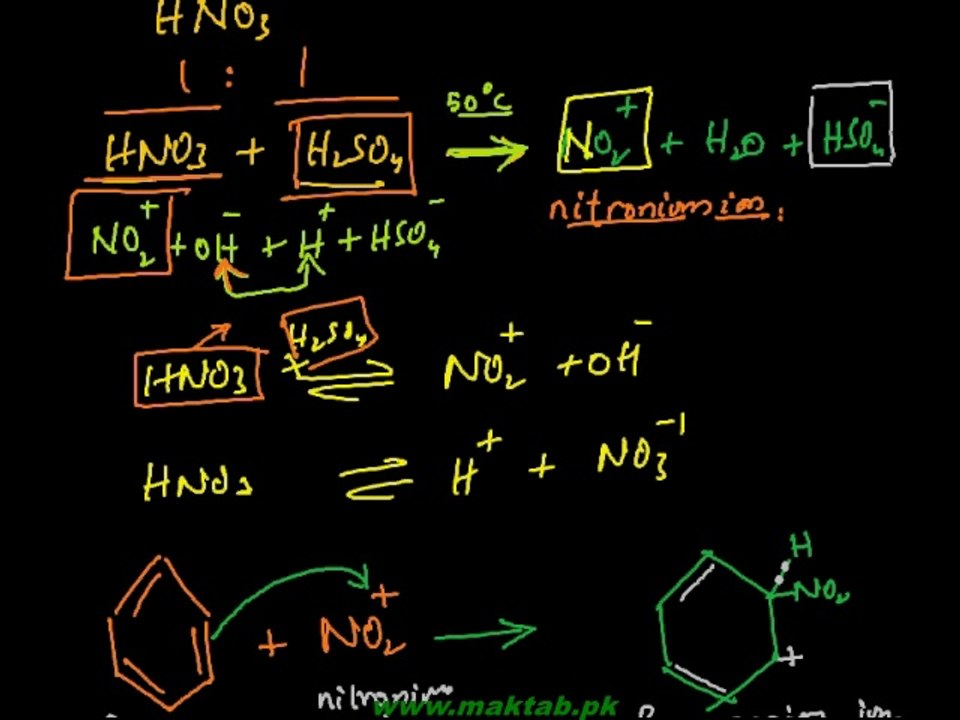 HNO₃
1 : 1
HNO₃ + H₂SO₄ 50°C → NO₂⁺ + H₂O + HSO₄⁻
nitronium ion.
NO₂⁺ + OH⁻ + H⁺ + HSO₄⁻
H₂SO₄
HNO₃ + ⇌ NO₂⁺ + OH⁻
HNO₃ ⇌ H⁺ + NO₃⁻¹
H
NO₂
+ NO₂⁺ → +
nitronium
www.maktab.pk